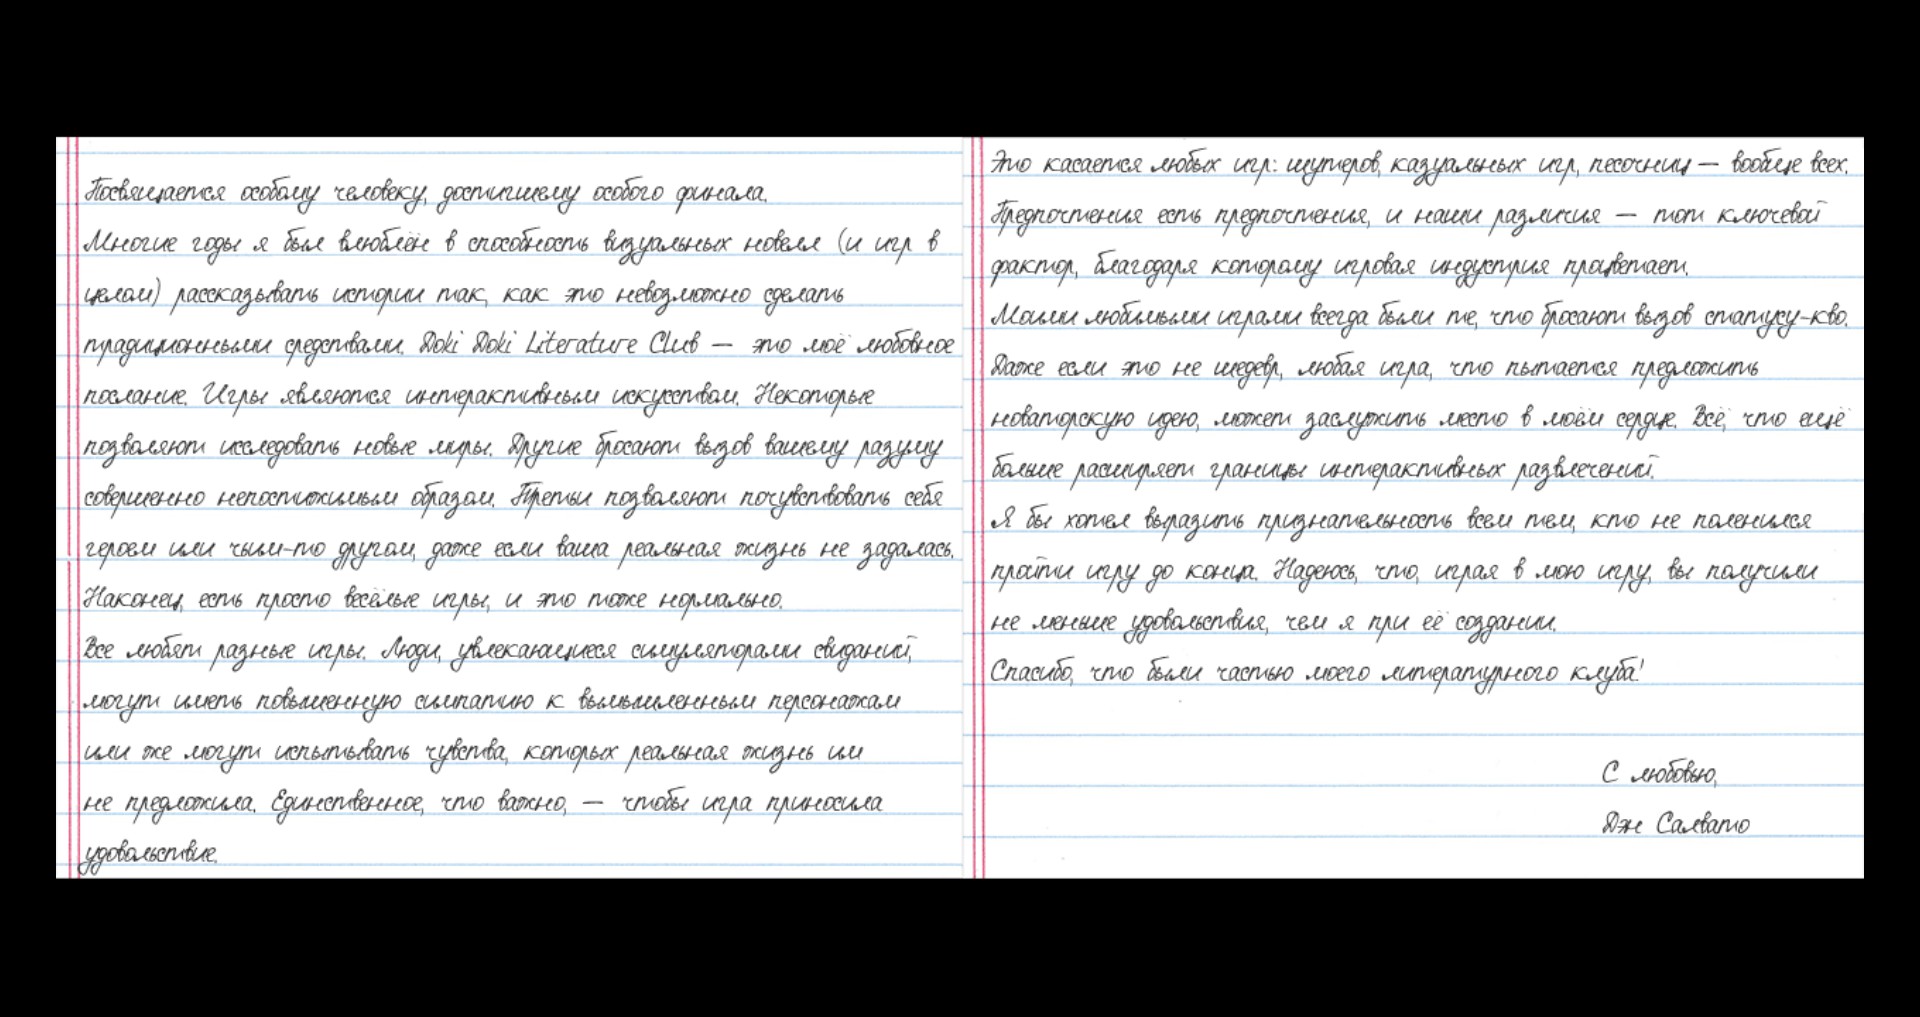 Посвящается особому человеку, достигшему особого финала.
Многие годы я был влюблён в способность визуальных новелл (и игр в
целом) рассказывать истории так, как это невозможно сделать
традиционными средствами. Doki Doki Literature Club — это моё любовное
послание. Игры являются интерактивным искусством. Некоторые
позволяют исследовать новые миры. Другие бросают вызов вашему разуму
совершенно непостижимым образом. Третьи позволяют почувствовать себя
героем или чьим-то другом, даже если ваша реальная жизнь не задалась.
Наконец, есть просто весёлые игры, и это тоже нормально.
Все любят разные игры. Люди, увлекающиеся симуляторами свиданий,
могут иметь повышенную симпатию к вымышленным персонажам
или же могут испытывать чувства, которых реальная жизнь им
не предложила. Единственное, что важно, — чтобы игра приносила
удовольствие.
Это касается любых игр: шутеров, казуальных игр, песочниц — вообще всех.
Предпочтения есть предпочтения, и наши различия — тот ключевой
фактор, благодаря которому игровая индустрия процветает.
Моими любимыми играми всегда были те, что бросают вызов статусу-кво.
Даже если это не шедевр, любая игра, что пытается предложить
новаторскую идею, может заслужить место в моём сердце. Всё, что ещё
больше расширяет границы интерактивных развлечений.
Я бы хотел выразить признательность всем тем, кто не поленился
пройти игру до конца. Надеюсь, что, играя в мою игру, вы получили
не меньше удовольствия, чем я при её создании.
Спасибо, что были частью моего литературного клуба!
С любовью,
Дэн Салвато